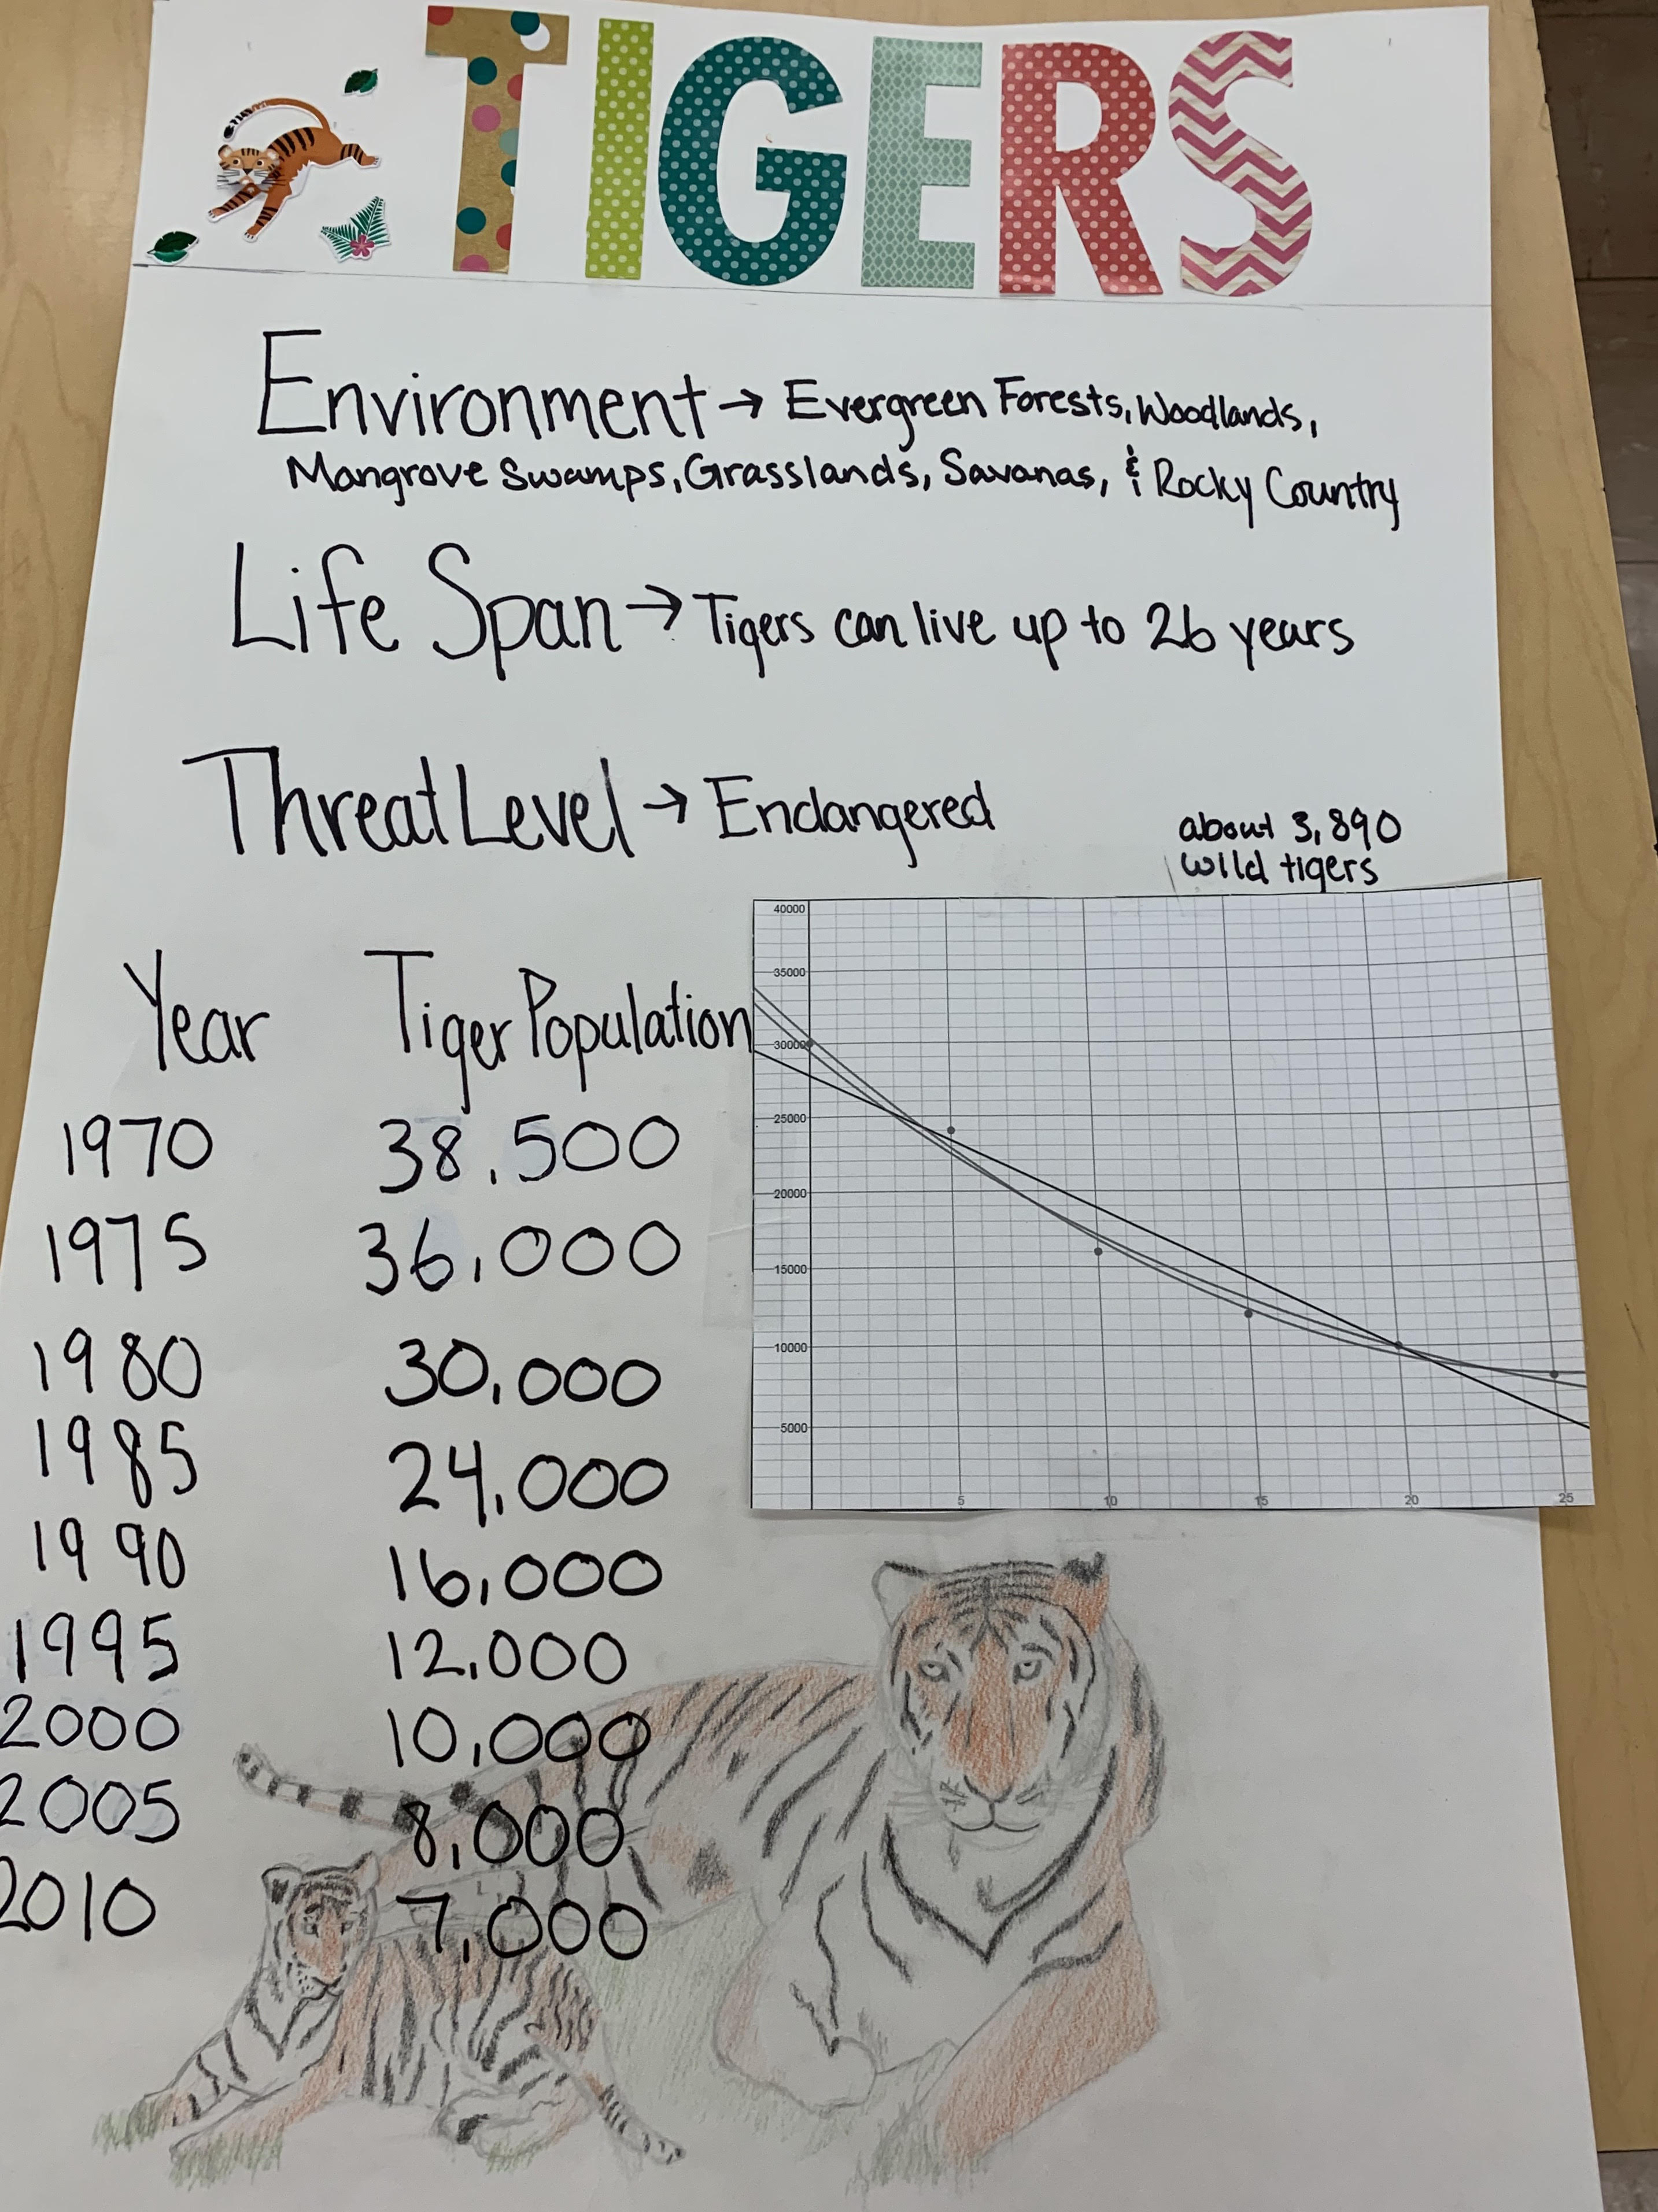 TIGERS
Environment → Evergreen Forests, Woodlands,
Mangrove Swamps, Grasslands, Savanas, & Rocky Country
Life Span → Tigers can live up to 26 years
Threat Level → Endangered
about 3,890
wild tigers
Year Tiger Population
1970 38,500
1975 36,000
1980 30,000
1985 24,000
1990 16,000
1995 12,000
2000 10,000
2005 8,000
2010 7,000
40000
35000
30000
25000
20000
15000
10000
5000
5 10 15 20 25